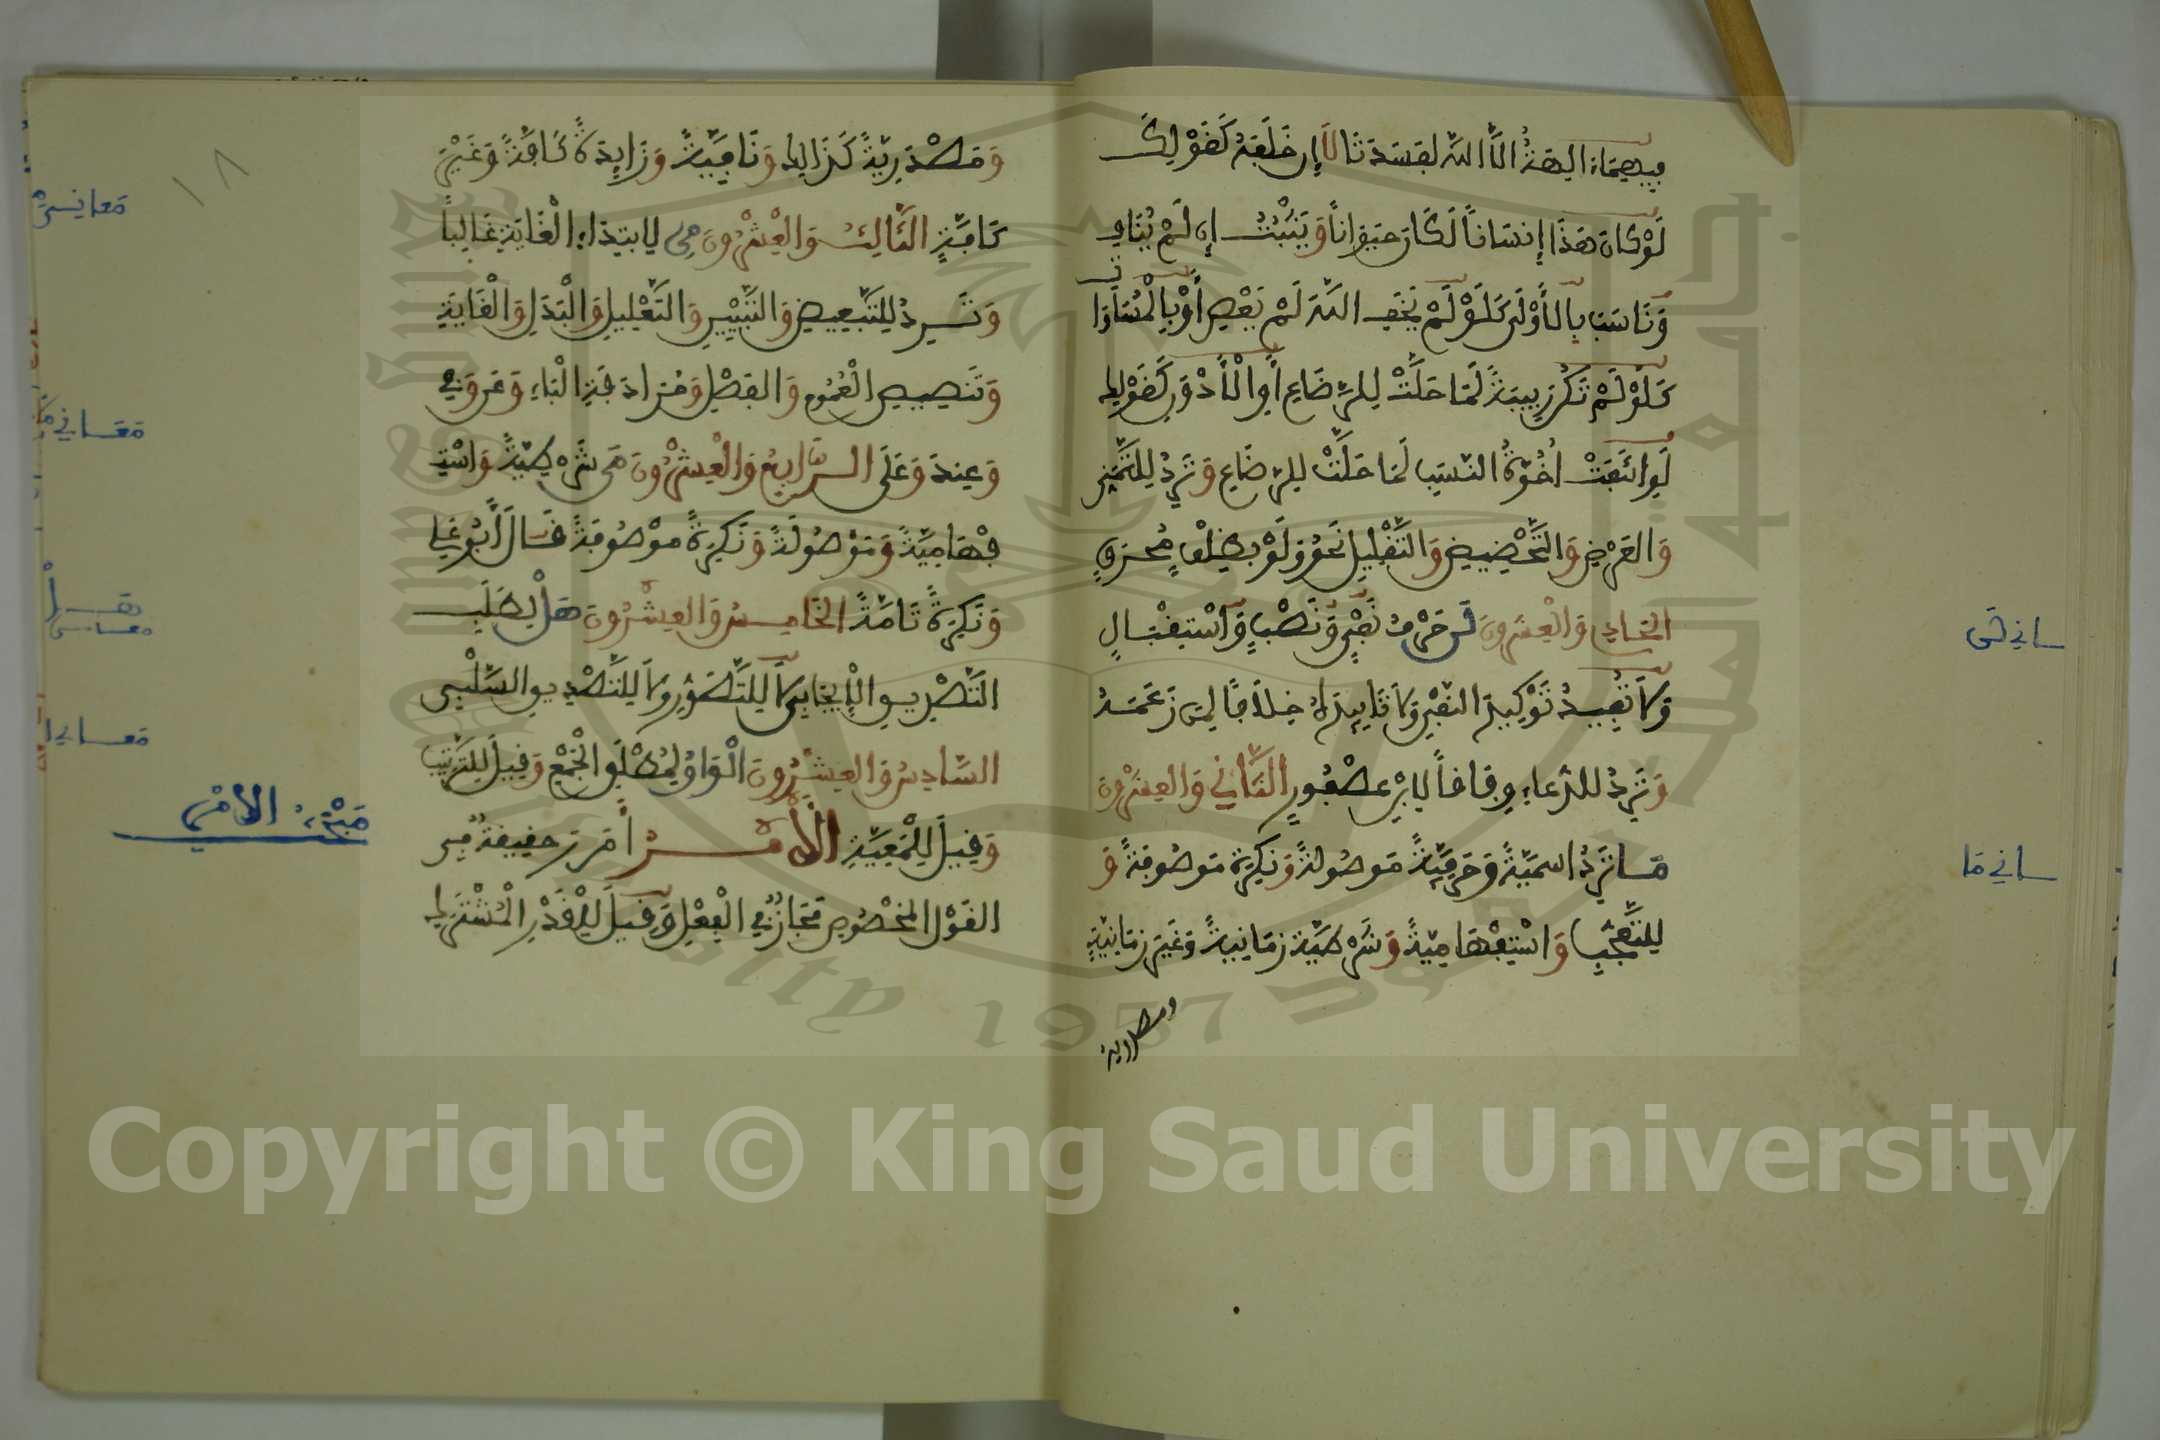 فيهما ءالهة إلا الله لفسدتا لا إن خلفه كقولك
لَوْ كان هذا إنسَاناً لَكَان حيواناً وَيَثْبُتُ إن لَمْ يُنَافِ
وَنَاسَبَ بِالأَوْلَى كَلَوْ لَمْ يَخَفِ اللهَ لَمْ يَعْصِ أَوْ بِالْمُسَاوَاة
كَلَوْ لَمْ تَكُن رَبِيبَةً لَمَا حَلَّتْ لِلرَّضَاعِ أَوِ الْأَدْوَنِ كَقَوْلِك
لَوِ انْتَفَتْ أُخُوَّةُ النَّسَبِ لَمَا حَلَّتْ لِلرَّضَاعِ وَتَرِدُ لِلتَّمَنِّي
وَالعَرْضِ وَالتَّحْضِيضِ وَالتَّقْلِيلِ نَحْوُ وَلَوْ بِظِلْفٍ مُحْرَقٍ
الحَادِي وَالْعِشْرُونَ لَن حَرْفُ نَفْيٍ وَنَصْبٍ وَاسْتِقْبَالٍ
وَلَا تُفِيدُ تَوْكِيدَ النَّفْيِ وَلَا تَابِيدَهُ خِلَافًا لِمَن زَعَمَهُ
وَتَرِدُ للدُّعَاءِ وِفَاقاً لِابْنِ عصْفُورٍ الثَّانِي وَالعِشْرُونَ
مَا تَرِدُ اسْمِيَّةً وَحَرْفِيَّةً مَوصُولةً وَنَكِرَةً مَوصُوفَةً وَ
لِلتَّعَجُّبِ وَاسْتِفْهَامِيَّةً وَشَرْطِيَّةً زمَانِيَّةً وَغَيْرَ زمَانِيَّةٍ
ومصدرية
ـاني لن
ـاني مَا
وَمَصْدَرِيَّةً كَذَالِكَ وَنَافِيَةً وَزَايِدَةً كَافَّةً وَغَيْرَ
كَافَّةٍ الثَّالِثُ وَالْعِشْرُونَ مِن لِابْتِدَاءِ الْغَايَةِ غَالِباً
وَتَرِدُ لِلتَّبْعِيضِ وَالتَّبْيِينِ وَالتَّعْلِيلِ وَالْبَدَلِ وَالْغَايَةِ
وَتَنصِيصِ الْعُمُومِ وَالفَصْلِ وَمُرَادَفَةِ الْبَاءِ وَعَن وَفِي
وَعِندَ وَعَلَى الرَّابِعُ وَالْعِشْرُونَ مَن شَرْطِيَّةً وَاسْتِـ
ـفْهَامِيَّةً وَمَوْصُولَةً وَنَكِرَةً مَوْصُوفَةً قَالَ أَبُو عَلِي
وَنَكِرَةً تَامَّةً الخَامِسُ وَالعِشْرُونَ هَلْ لِطَلَبِ
التَّصْدِيقِ الْإِيجَابِيِّ لَا لِلتَّصَوُّرِ وَلَا لِلتَّصْدِيقِ السَّلْبِي
السَّادِسُ وَالعِشْرُونَ الْوَاوُ لِمُطْلَقِ الْجَمْعِ وَقِيلَ لِلتَّرْتِيبِ
وَقِيلَ لِلْمَعِيَّةِ الْأَمْـــرُ أَ مَ رَ حقيقةٌ فِي
القَوْلِ المَخْصُوصِ مَجَازٌ فِي الْفِعْلِ وَقِيلَ لِلْقَدْرِ الْمُشْتَرَكِ
١٨
معاني مَـ
هَــل
معاني ا
مَبْحَثُ الأمْر